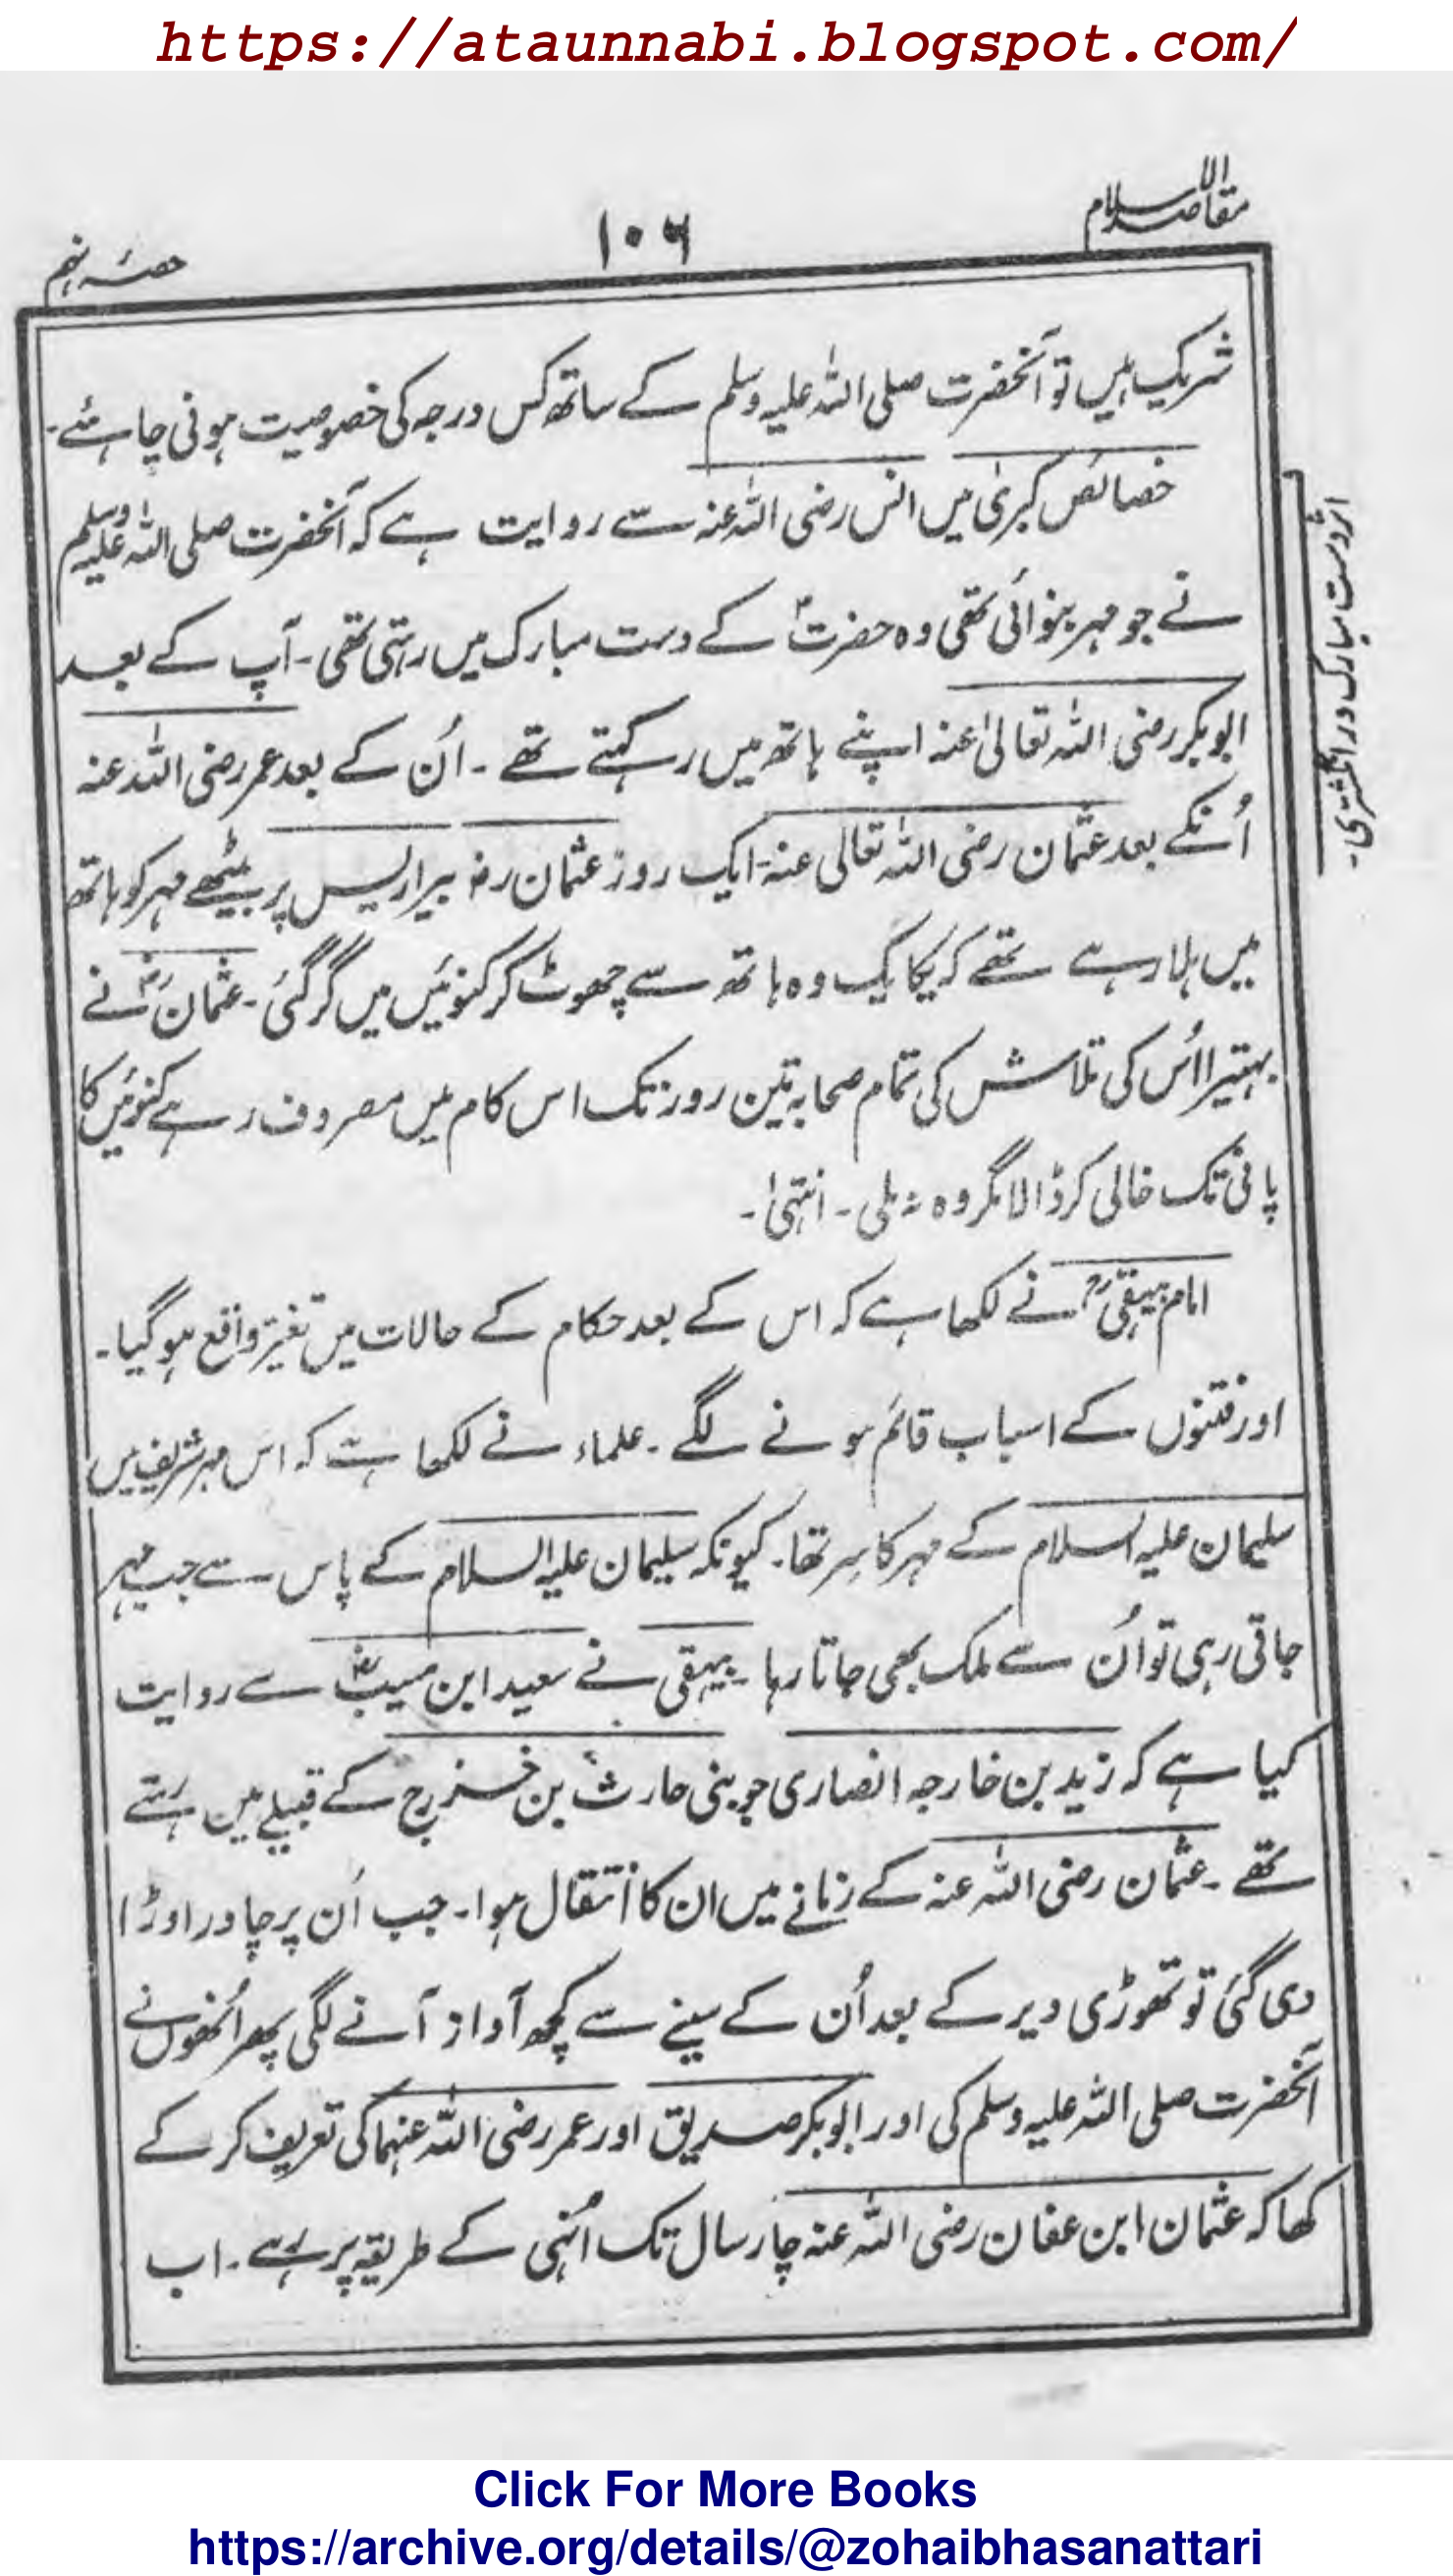 https://ataunnabi.blogspot.com/
مقاصد الاسلام
۱۰۶
حصۂ نہم
شریک ہیں تو آنحضرت صلی اللہ علیہ وسلم کے ساتھ کس درجہ کی خصوصیت ہونی چاہئے۔
خصائص کبریٰ میں انس رضی اللہ عنہ سے روایت ہے کہ آنحضرت صلی اللہ علیہ وسلم
نے جو مہر بنوائی تھی وہ حضرتؐ کے دست مبارک میں رہتی تھی۔ آپ کے بعد
ابوبکر رضی اللہ تعالیٰ عنہ اپنے ہاتھ میں رکہتے تھے ۔ اُن کے بعد عمر رضی اللہ عنہ
اُنکے بعد عثمان رضی اللہ تعالی عنہ۔ ایک روز عثمان رضؓ بیراریس پر بیٹھے مہر کو ہاتھ
میں ہلا رہے تھے کہ یکایک وہ ہاتھ سے چھوٹ کر کنوئیں میں گر گئی۔ عثمانؓ نے
بہتیرا اُس کی تلاش کی تمام صحابہ تین روز تک اس کام میں مصروف رہے کنوئیں کا
پانی تک خالی کر ڈالا مگر وہ نہ ملی ۔ انتہیٰ۔
امام بیہقیؒ نے لکھا ہے کہ اس کے بعد حکام کے حالات میں تغیر واقع ہو گیا۔
اور فتنوں کے اسباب قائم ہونے لگے ۔ علماء نے لکھا ہے کہ اس مہر شریف میں
سلیمان علیہ السلام کے مہر کا سِر تھا۔ کیونکہ سلیمان علیہ السلام کے پاس سے جب مہر
جاتی رہی تو اُن سے ملک بھی جاتا رہا ۔ بیہقی نے سعید ابن مسیبؓ سے روایت
کیا ہے کہ زید بن خارجہ انصاری جو بنی حارث بن خزرج کے قبیلے میں رہتے
تھے ۔ عثمان رضی اللہ عنہ کے زمانے میں ان کا انتقال ہوا۔ جب اُن پر چادر اوڑا
دی گئی تو تھوڑی دیر کے بعد اُن کے سینے سے کچھ آواز آنے لگی پھر اُنھوں نے
آنحضرت صلی اللہ علیہ وسلم کی اور ابوبکر صدیق اور عمر رضی اللہ عنہما کی تعریف کر کے
کہا کہ عثمان ابن عفان رضی اللہ عنہ چار سال تک اُنہی کے طریقہ پر رہے ۔ اب
اثر دست مبارک در انگشتری۔
Click For More Books
https://archive.org/details/@zohaibhasanattari